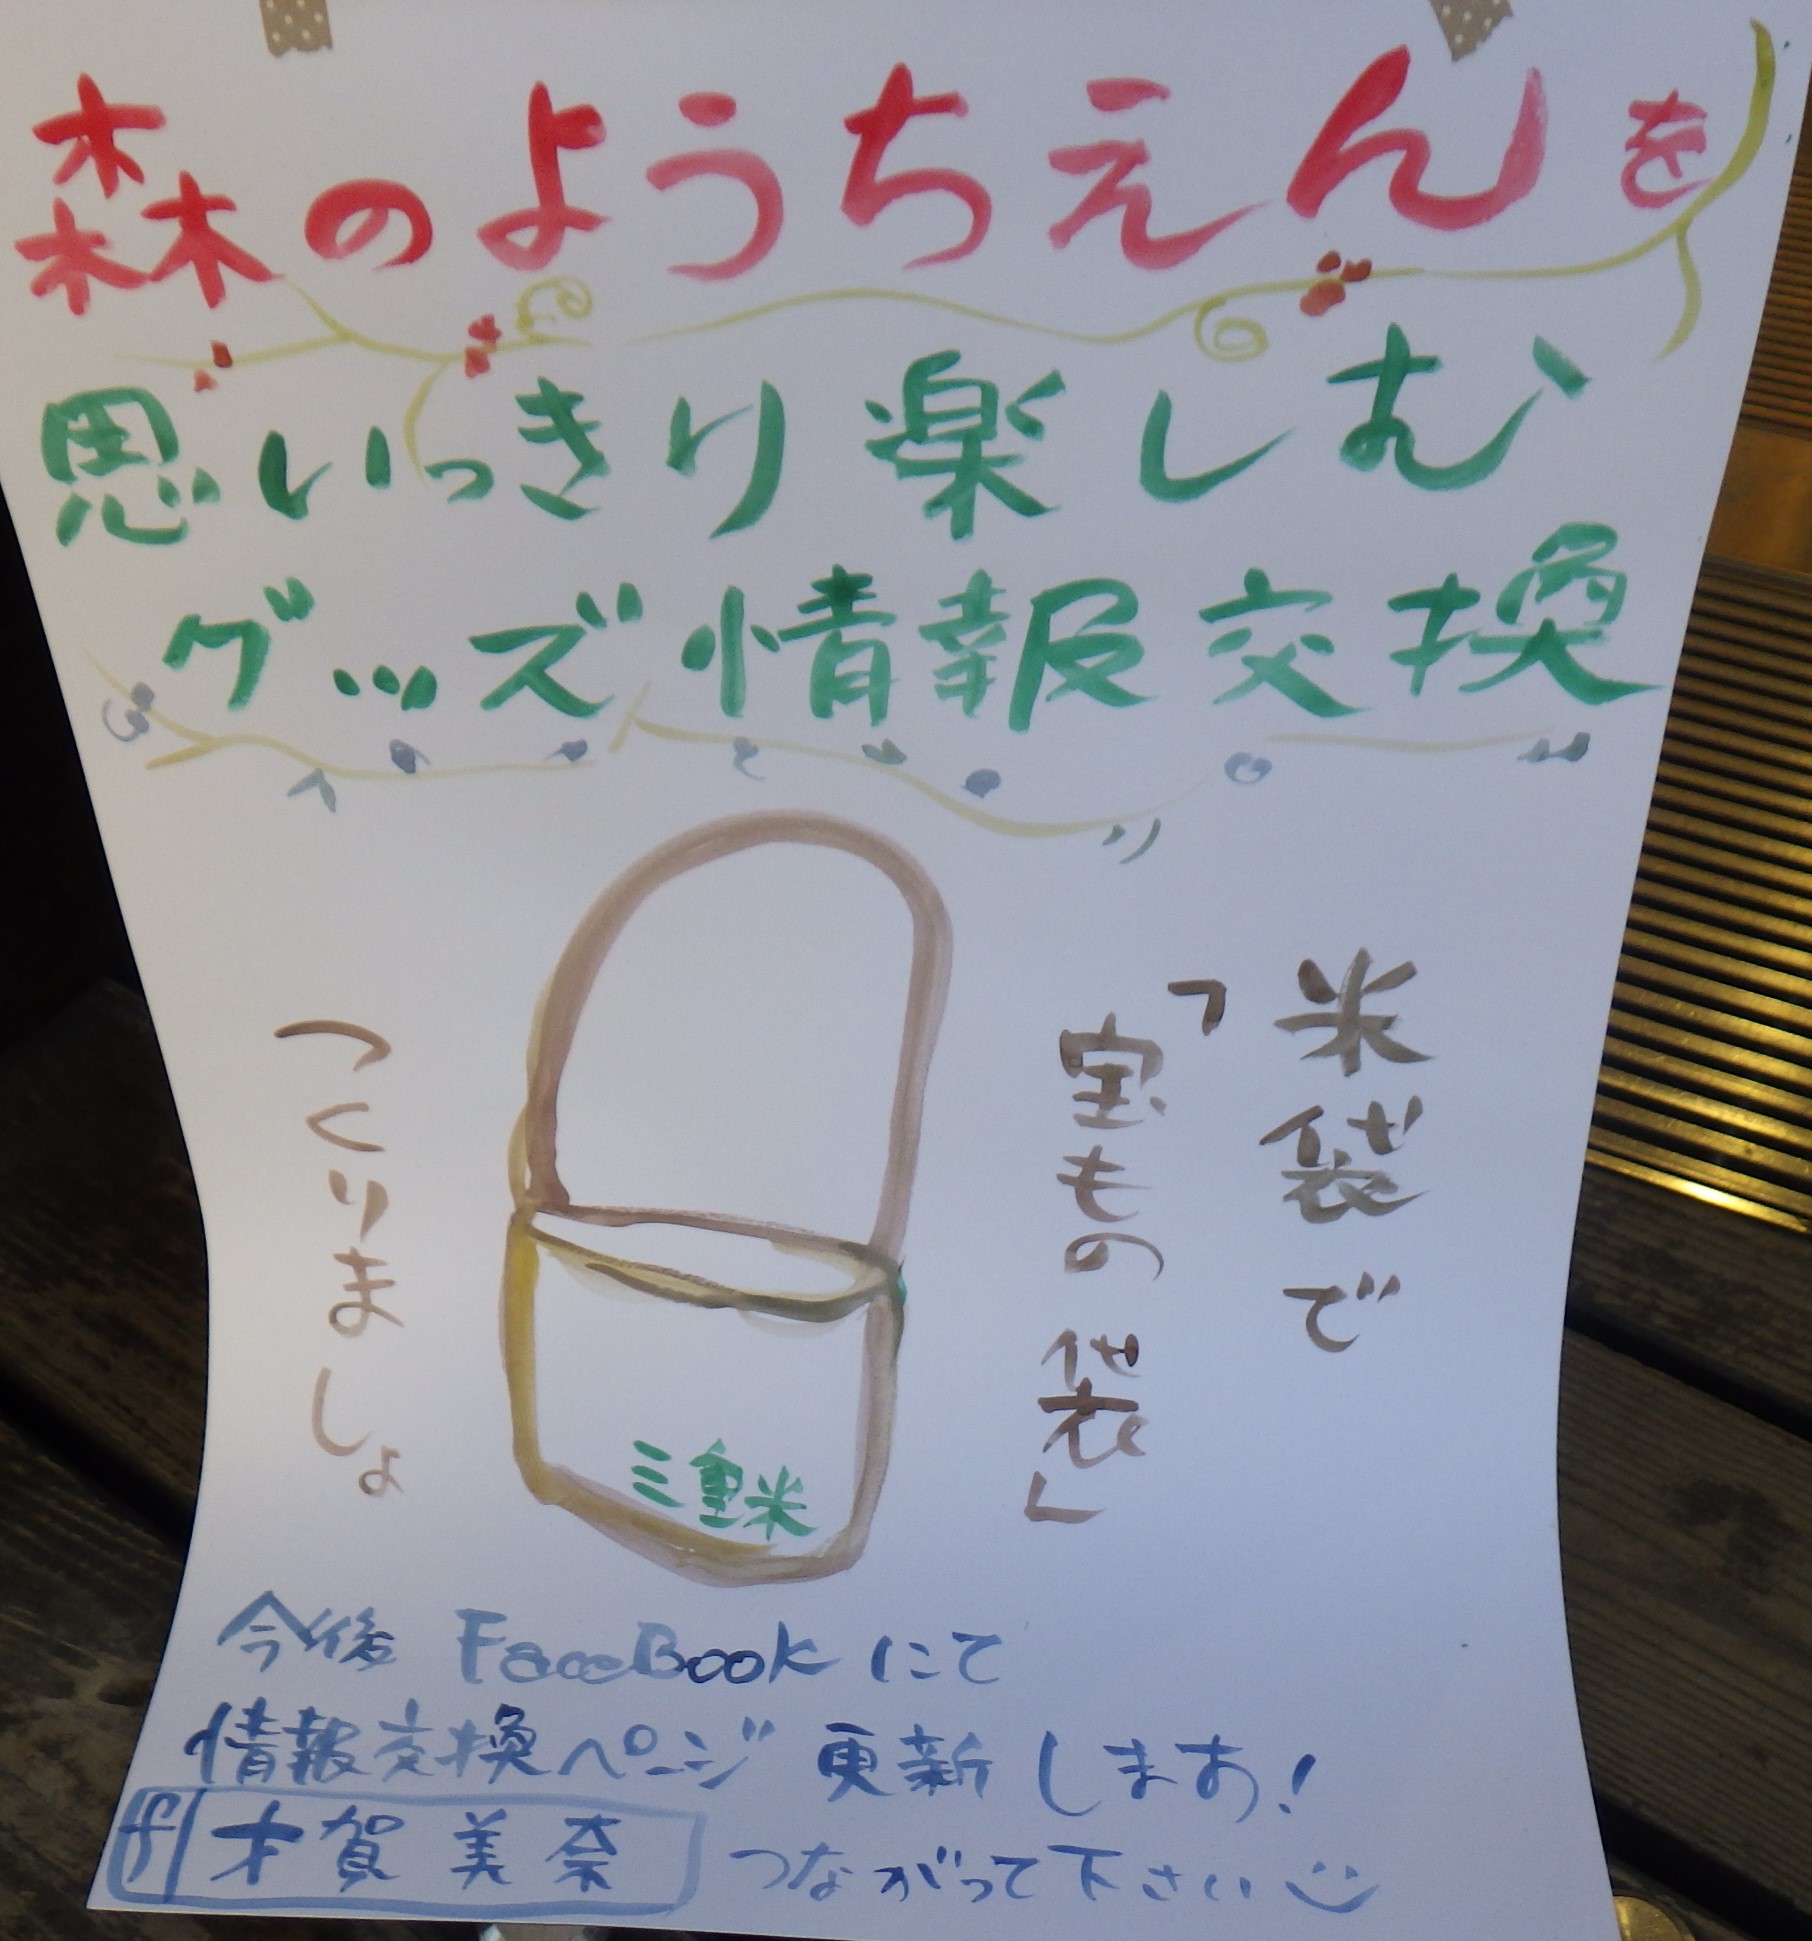 森のようちえんを
思いっきり楽しむ
グッズ情報交換
米袋で
「宝もの袋」
つくりましょ
三重米
今後 FaceBook にて
情報交換ページ 更新します!
f 才賀美奈 つながって下さい